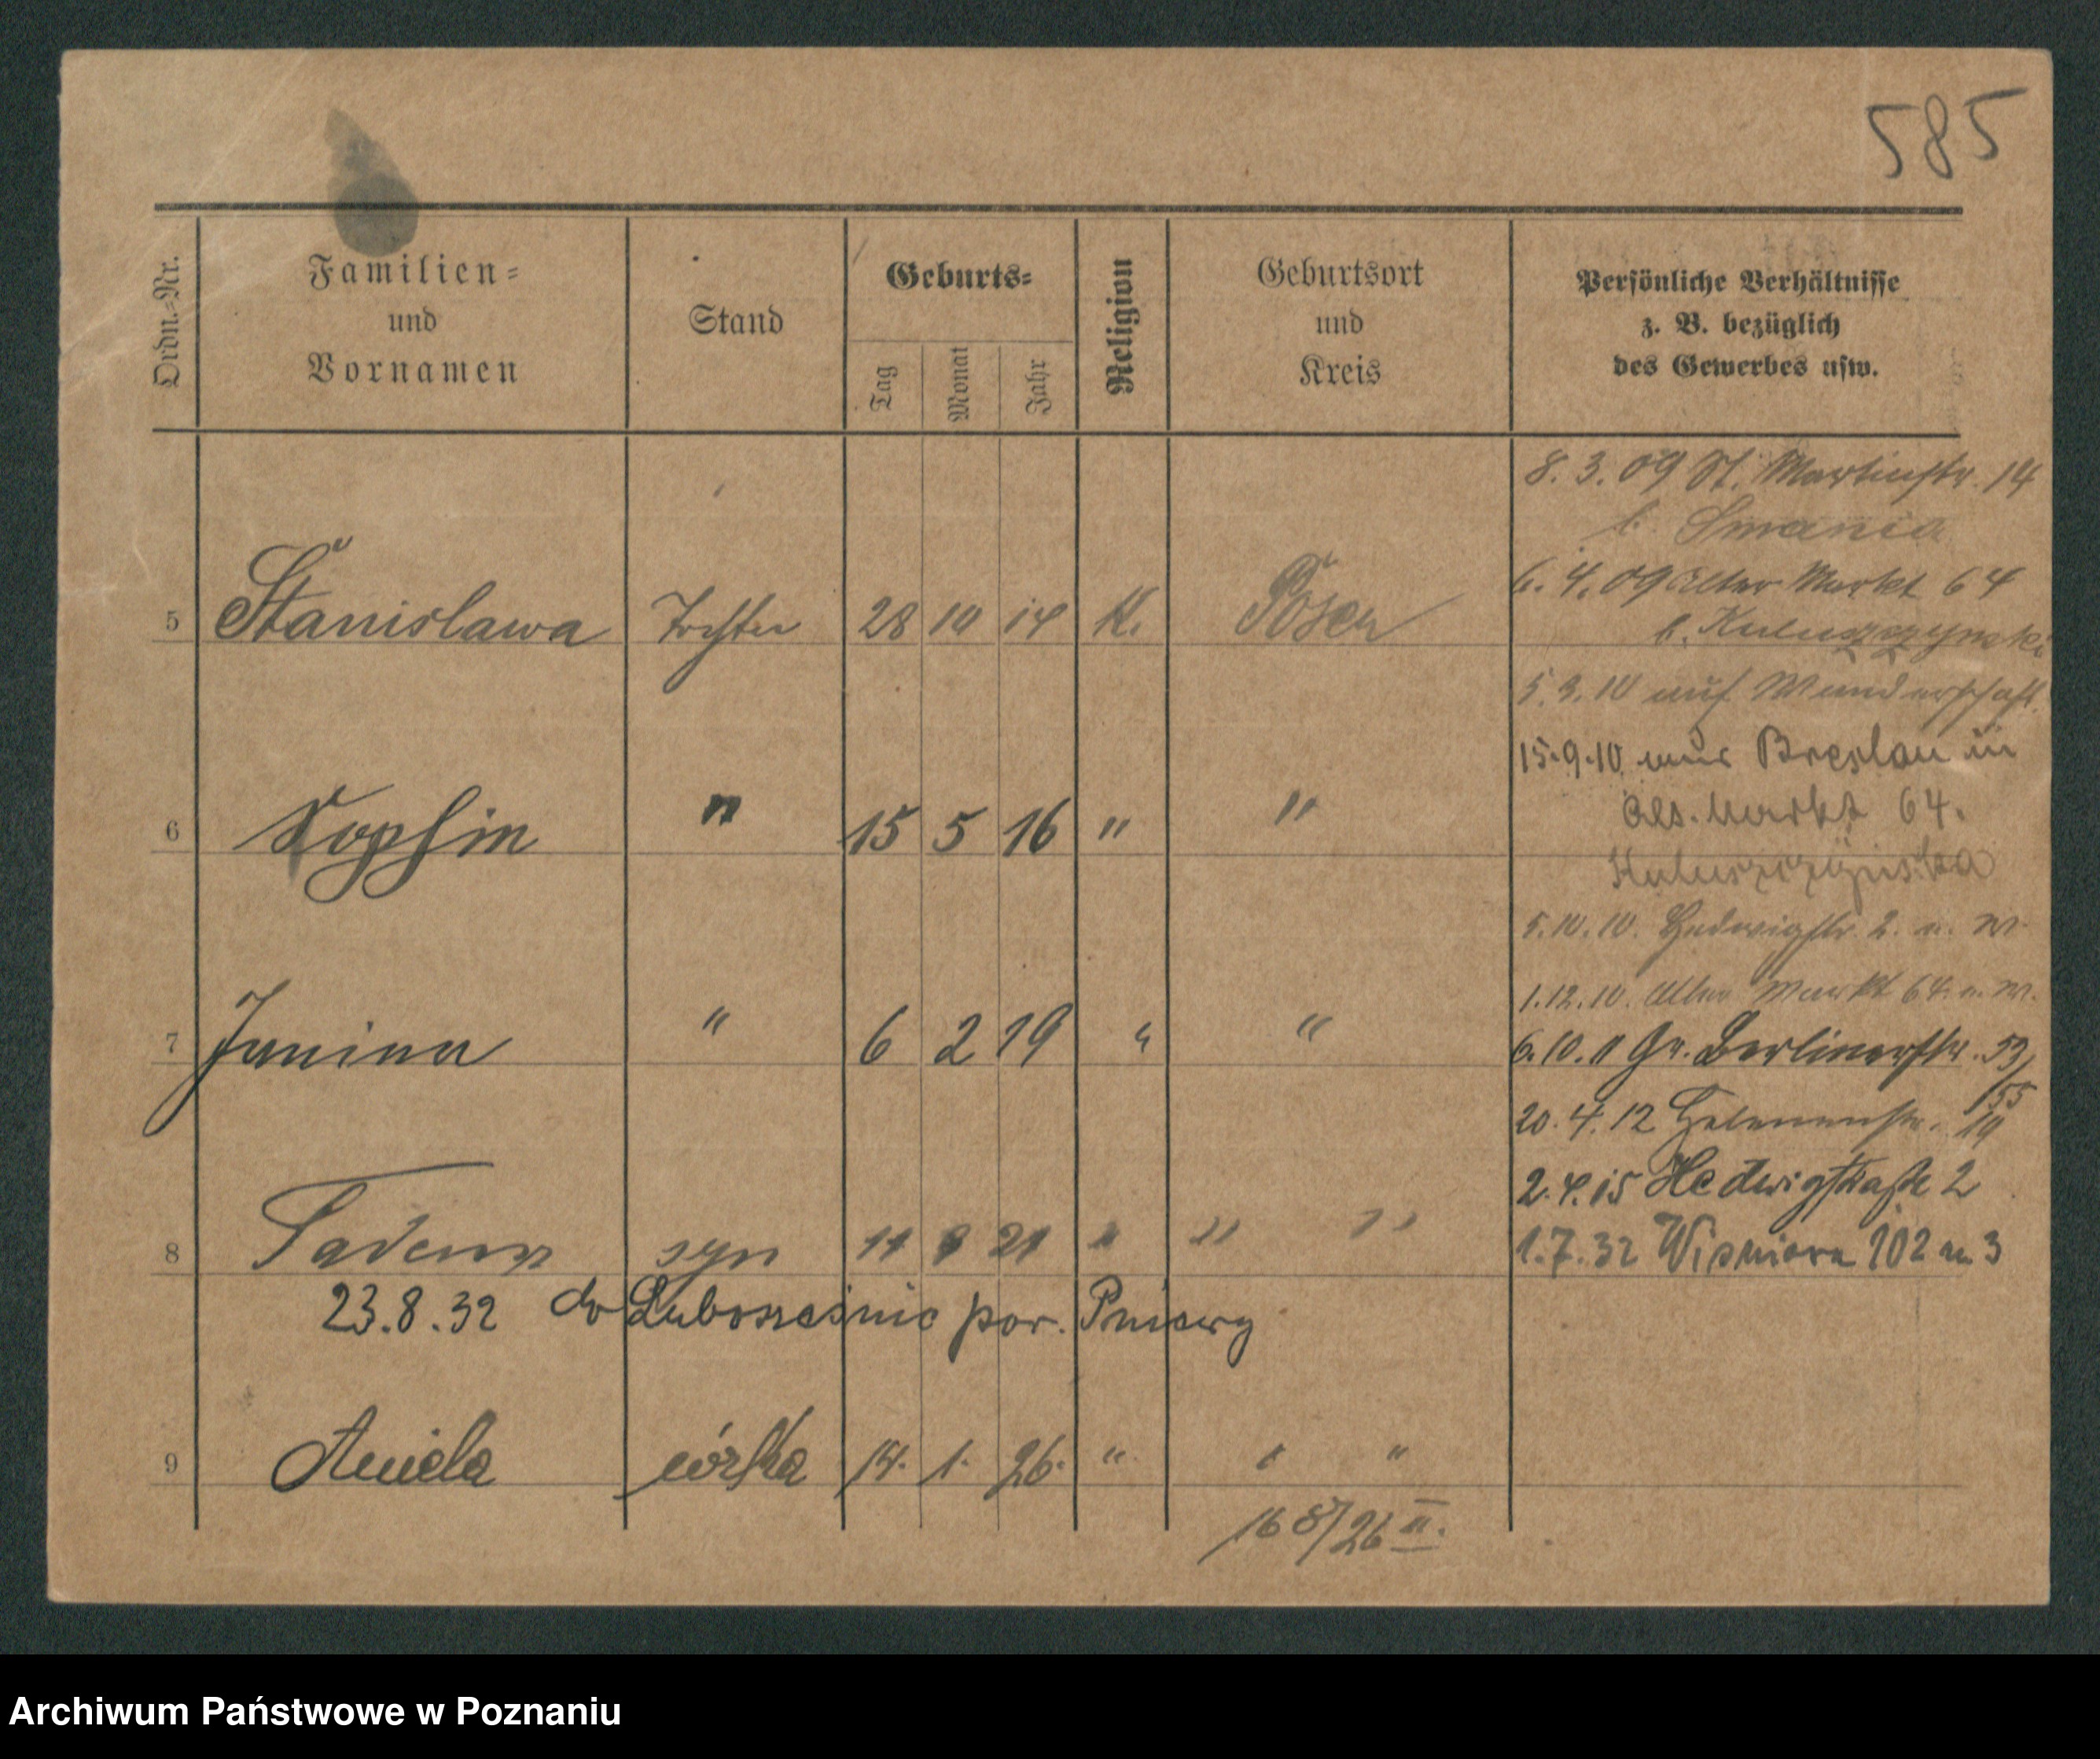 585
Ordn.-Nr.
Familien-
und
Vornamen
Stand
Geburts-
Tag
Monat
Jahr
Religion
Geburtsort
und
Kreis
Persönliche Verhältnisse
z. B. bezüglich
des Gewerbes usw.
8. 3. 09 St. Martinstr. 14
b. Smania
6. 4. 09 Alter Markt 64
b.
5 Stanislawa Tochter 28 10 14 K. Posen
5.3.10 auf Wanderschaft.
15.9.10 aus Breslau in
Markt 64.
6 Zophia " 15 5 16 " "
5.10.10. Hedwigstr. 2. a. W.
1.12.10. Alter Markt 64. a. W.
7 Janina " 6 2 19 " "
6.10.11 Gr. Berlinerstr. 53/
55
20. 4. 12 Helenenstr. 10
2. 4. 15 Hedwigstraße 2
8 Tadeusz syn 11 9 21 " " "
1.7.32 Wisniowa 102 m 3
23.8.32 do Lubosześnic pow. Pniewy
9 Aniela córka 14. 1. 26. " " "
168/26 II.
Archiwum Państwowe w Poznaniu